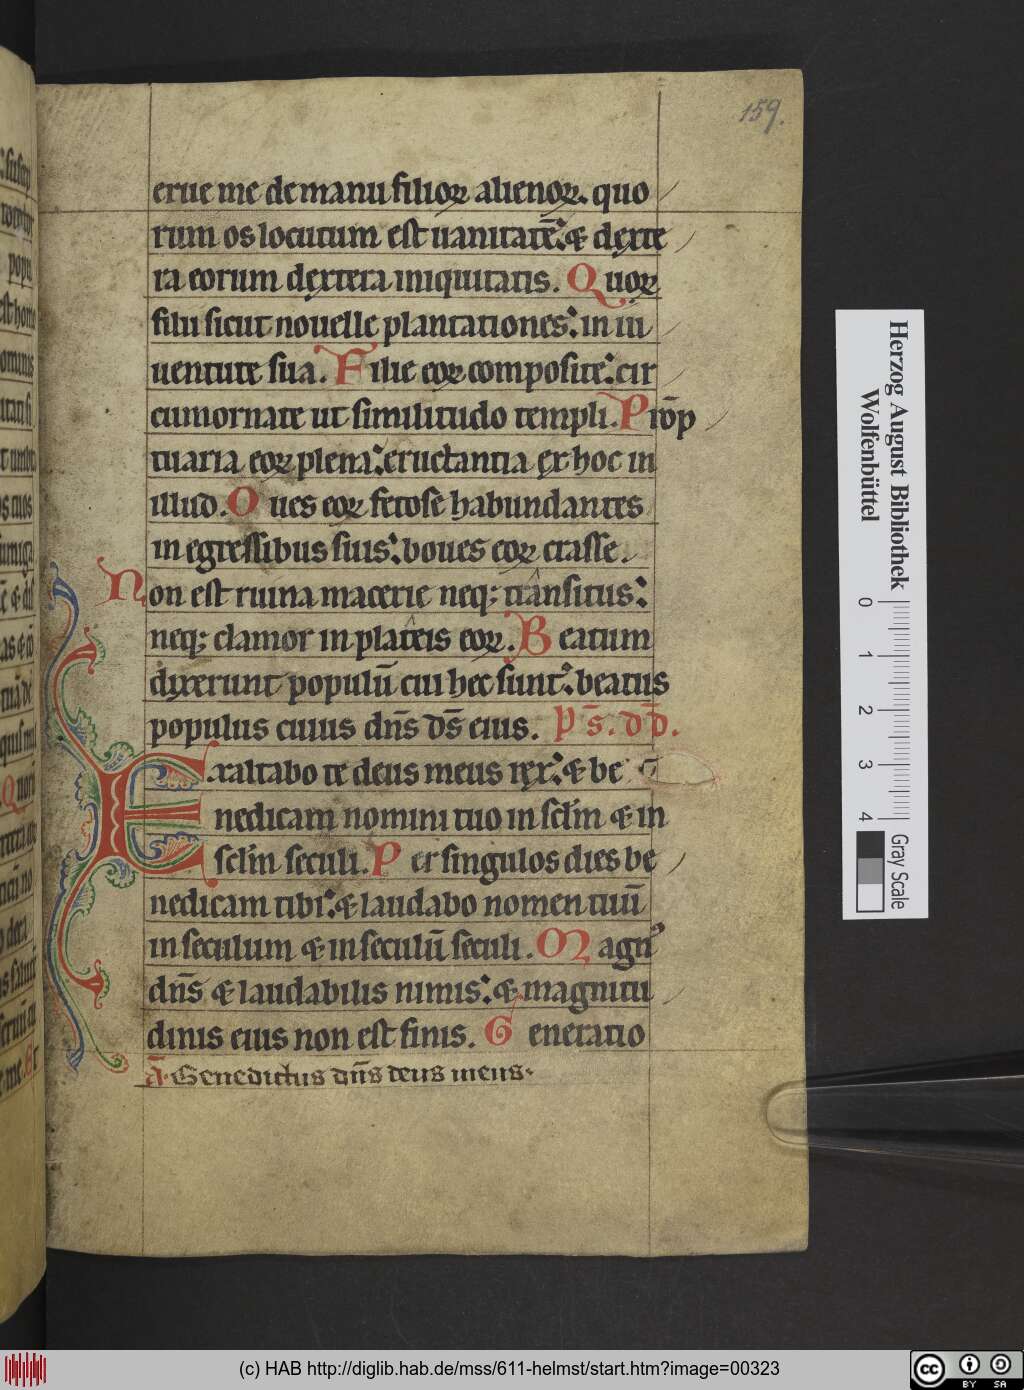 159.
erue me de manu filioꝝ alienoꝝ. quo
rum os locutum est uanitatē: & dexte
ra eorum dextera iniquitatis. Quoꝝ
filii sicut nouelle plantationes: in iu
uentute sua. Filie eoꝝ composite: cir
cumornate ut similitudo templi. Prōp
tuaria eoꝝ plena: eructantia ex hoc in
illud. Oues eoꝝ fetose habundantes
in egressibus suis: boues eoꝝ crasse.
Non est ruina macerie neq; transitus:
neq; clamor in plateis eoꝝ. Beatum
dixerunt populū cui hec sunt: beatus
populus cuius dn̄s ds̄ eius. Ps̄. dd̄.
Exaltabo te deus meus rex: & be
nedicam nomini tuo in scl̄m & in
scl̄m seculi. Per singulos dies be
nedicam tibi: & laudabo nomen tuū
in seculum & in seculū seculi. Magnꝰ
dn̄s & laudabilis nimis: & magnitu
dinis eius non est finis. Generatio
ā. Benedictus dn̄s deus meus.
Herzog August Bibliothek
Wolfenbüttel
0 1 2 3 4
Gray Scale
(c) HAB http://diglib.hab.de/mss/611-helmst/start.htm?image=00323
cc BY SA